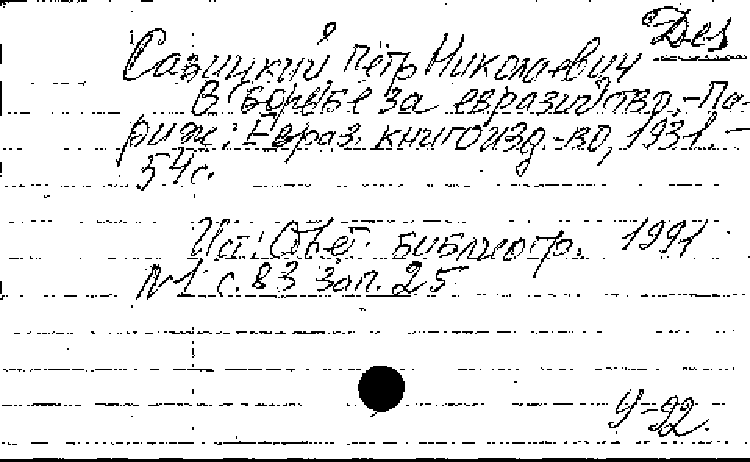 Дез
Савицкий, Петр Николаевич
В борьбе за евразийство. - Па-
риж: Евраз. книгоизд-во, 1931. -
54 с.
Ист: Ответ. библиогр. 1991
№1 с. 83 зап. 25
У-92.